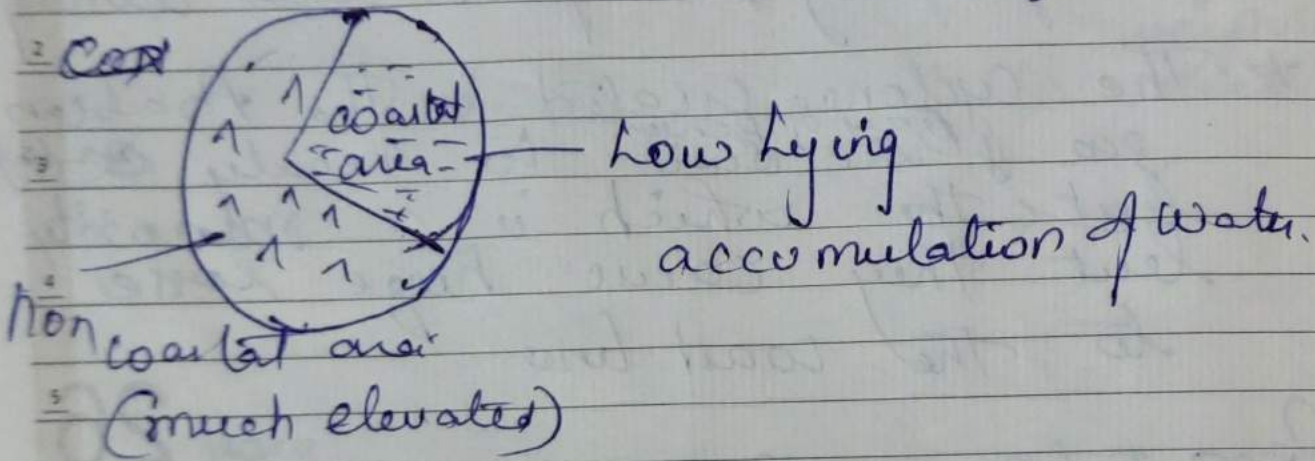 2
coastal
area
3
Low Lying
accumulation of water.
4
Non
coastal area
5
(much elevated)